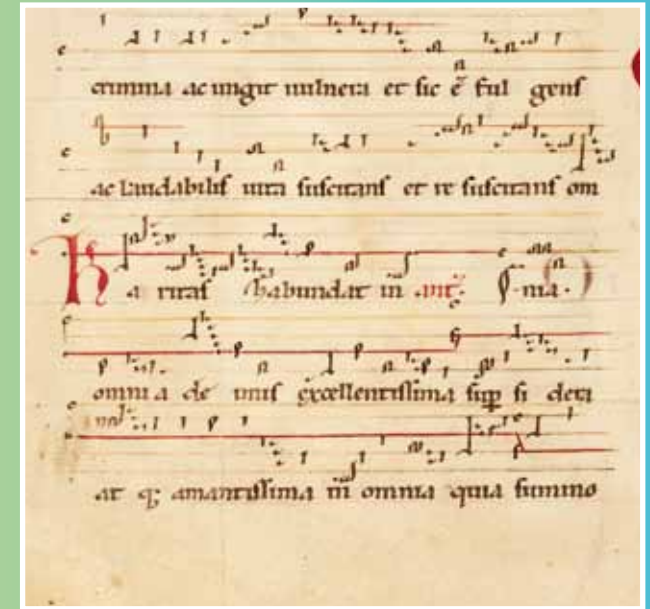 crimina ac ungit uulnera et sic ē ful gens
ac laudabilis uita suscitans et re suscitans om
K a ritas habundat in ant. nia.
omnia de imis excellentissima sup si dera
at q; amantissima in omnia quia summo